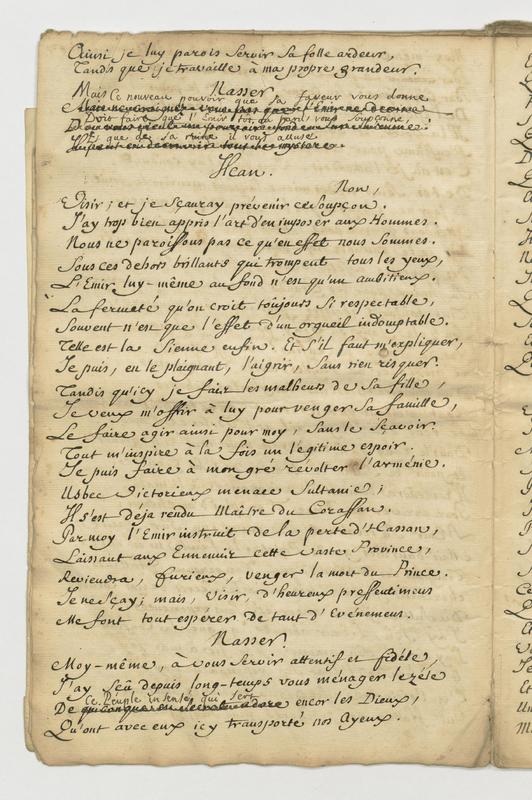 Ainsi je luy parois servir sa folle ardeur,
Tandis que je travaille à ma propre grandeur.
Nasser.
Mais ce nouveau pouvoir que sa faveur vous donne
Doit faire que l'Emir tôt, ou tard vous soupçonne,
Et que de sa ruine il vous accuse
Ilcan.
Non,
Visir; et je sçauray prévenir ce soupçon.
J'ay trop bien appris l'art d'en imposer aux Hommes.
Nous ne paroissons pas ce qu'en effet nous sommes.
Sous ces dehors brillants qui trompent tous les yeux,
L'Emir luy-même au fond n'est qu'un ambitieux.
La fermeté qu'on croit toûjours si respectable,
Souvent n'est que l'effet d'un orgueil indomptable.
Telle est la sienne enfin. Et s'il faut m'expliquer,
Je puis, en le plaignant, l'aigrir, sans rien risquer.
Tandis qu'icy je fais les malheurs de sa fille,
Je veux m'offrir à luy pour venger sa famille,
Le faire agir ainsi pour moy, sans le sçavoir.
Tout m'inspire à la fois un légitime espoir.
Je puis faire à mon gré révolter l'arménie.
Usbec victorieux menace Sultanie;
Il s'est déja rendu Maître du Corassan.
Par moy l'Emir instruit de la perte d'Hassan,
Laissant aux Ennemis cette vaste Province,
Reviendra, furieux, venger la mort du Prince.
Je ne sçay; mais, Visir, d'heureux pressentimens
Me font tout espérer de tant d'Evénemens.
Nasser.
Moy-même, à vous servir attentif et fidéle,
J'ay sçû depuis long-temps vous ménager le zéle
Ce Peuple insensé qui sert
De encor les Dieux,
Qu'ont avec eux icy transporté nos Ayeux.